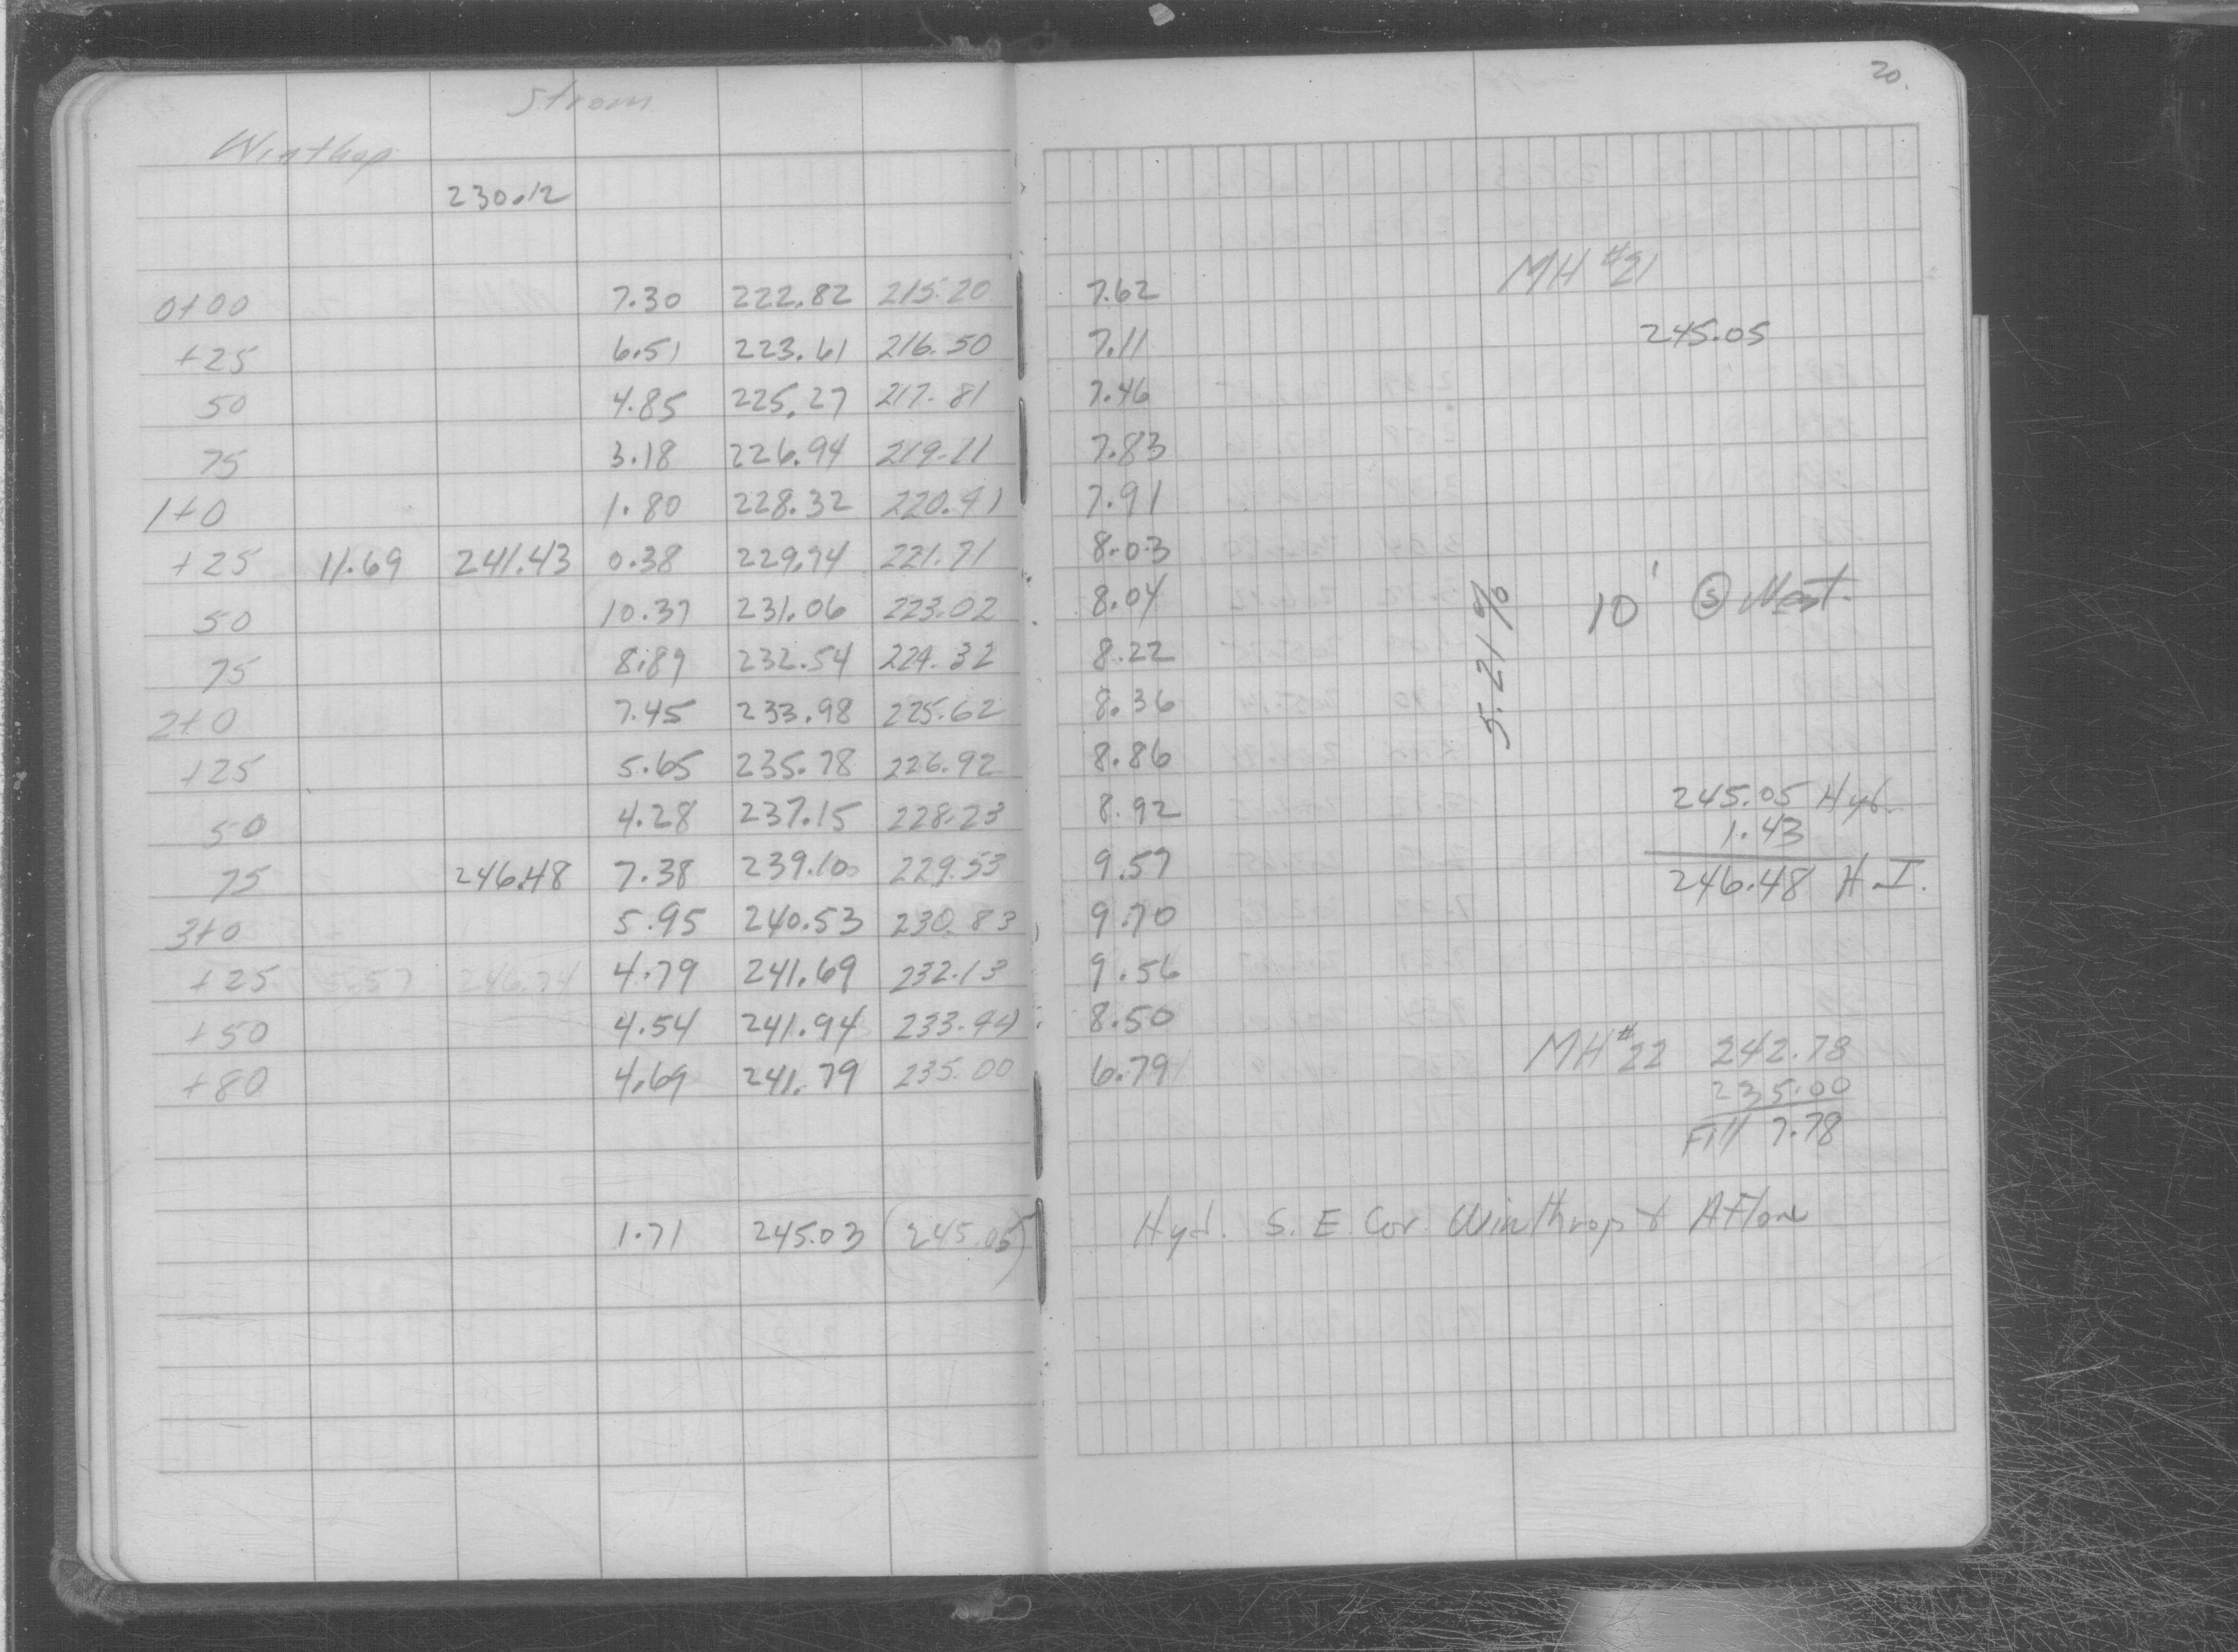 20.
Strom
Winthop
230.12
MH #21
0+00 7.30 222.82 215.20 7.62
245.05
+25 6.51 223.61 216.50 7.11
50 4.85 225.27 217.81 7.46
75 3.18 226.94 219.11 7.83
1+0 1.80 228.32 220.41 7.91
+25 11.69 241.43 0.38 229.74 221.71 8.03
50 10.37 231.06 223.02 8.04
10' Ⓢ West.
75 8.89 232.54 224.32 8.22
5.21%
2+0 7.45 233.98 225.62 8.36
+25 5.65 235.78 226.92 8.86
50 4.28 237.15 228.23 8.92
245.05 Hyd.
1.43
246.48 H.I.
75 246.48 7.38 239.10 229.53 9.57
3+0 5.95 240.53 230.83 9.70
+25 5.57 246.74 4.79 241.69 232.13 9.56
+50 4.54 241.94 233.44 8.50
+80 4.69 241.79 235.00 6.79
MH #22 242.78
235.00
Fill 7.78
1.71 245.03 (245.05) Hyd. S. E. Cor. Winthrop &